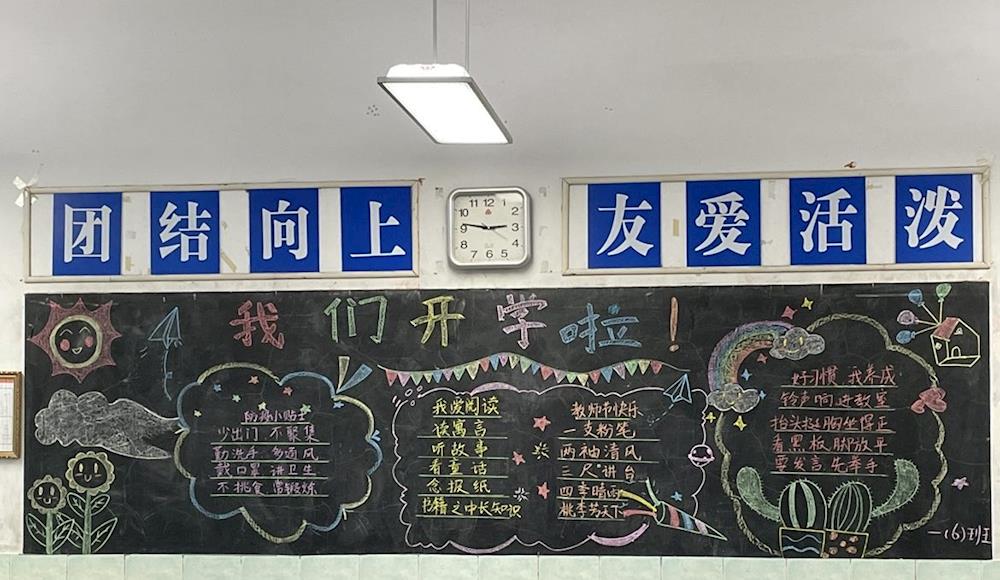 团结向上
友爱活泼
10 11 12 1 2 3 4 5 6 7 8 9
我们开学啦!
防疫小贴士
少出门 不聚集
勤洗手 多通风
戴口罩 讲卫生
不挑食 常锻炼
我爱阅读
读寓言
听故事
看童话
念报纸
书籍之中长知识
教师节快乐
一支粉笔
两袖清风
三尺讲台
四季晴雨
桃李芳天下
好习惯 我养成
铃声响 进教室
抬头挺胸坐得正
看黑板 脚放平
要发言 先举手
一(6)班